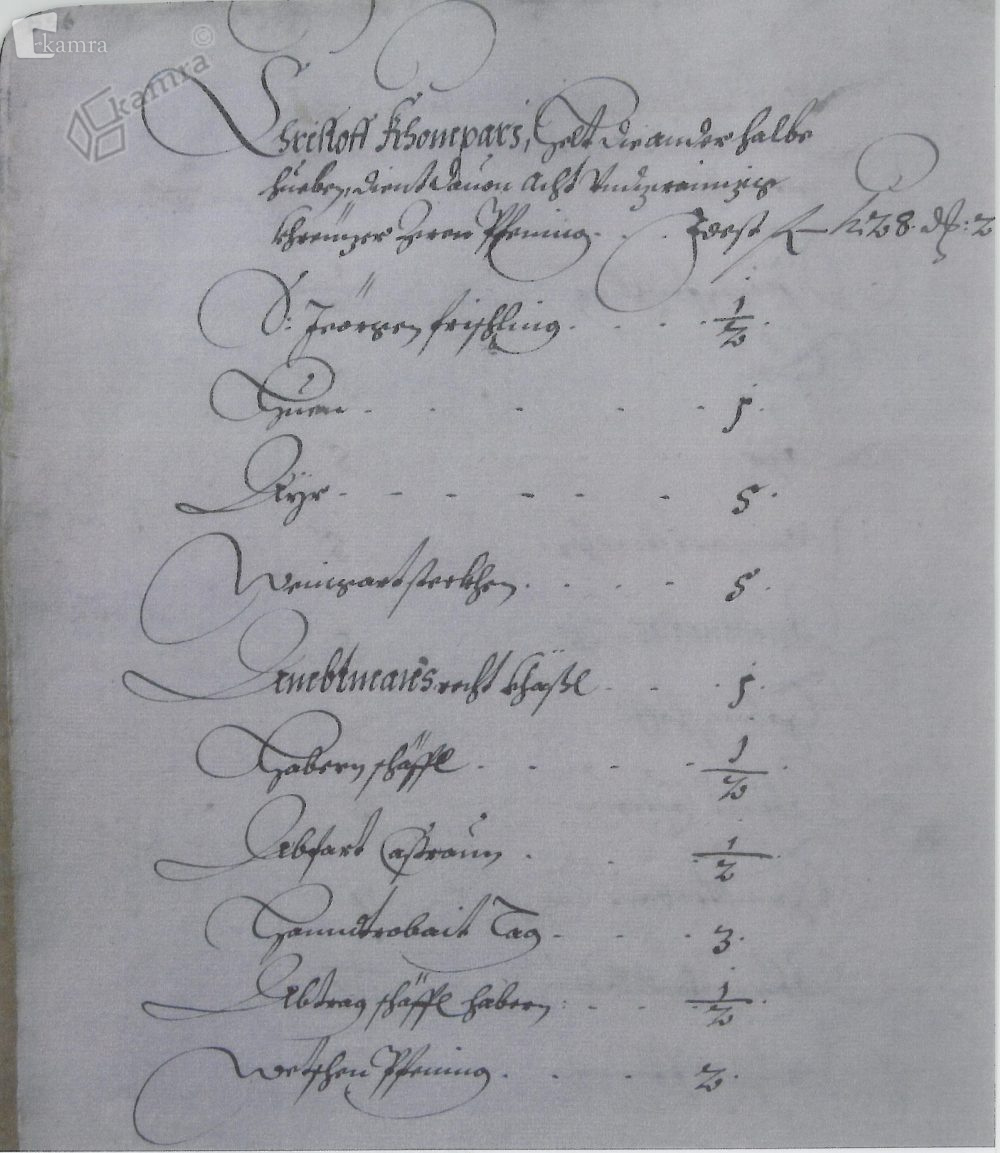 kamra
kamra ©
Christoff Khompars, helt die ander halbe
hueben, dient dauon Acht Vndzwainzig
Khreüzer Zwen Pfening. . . . Idest f — kr. 28. dl: 2
S: Jeörgen frischling. . . . . 1/2.
Huen . . . . . 1.
Ayr . . . . . . 5.
Weingartsteckhen. . . . . 5.
Ambtmans recht khäßl . . . 1.
Habern schäffl . . . . 1/2.
Abfart Castraun . . . 1/2.
Handtrobait Tag . . . 3.
Abtrag schäffl habern: . . 1/2.
Wetschen Pfening . . . . 2.